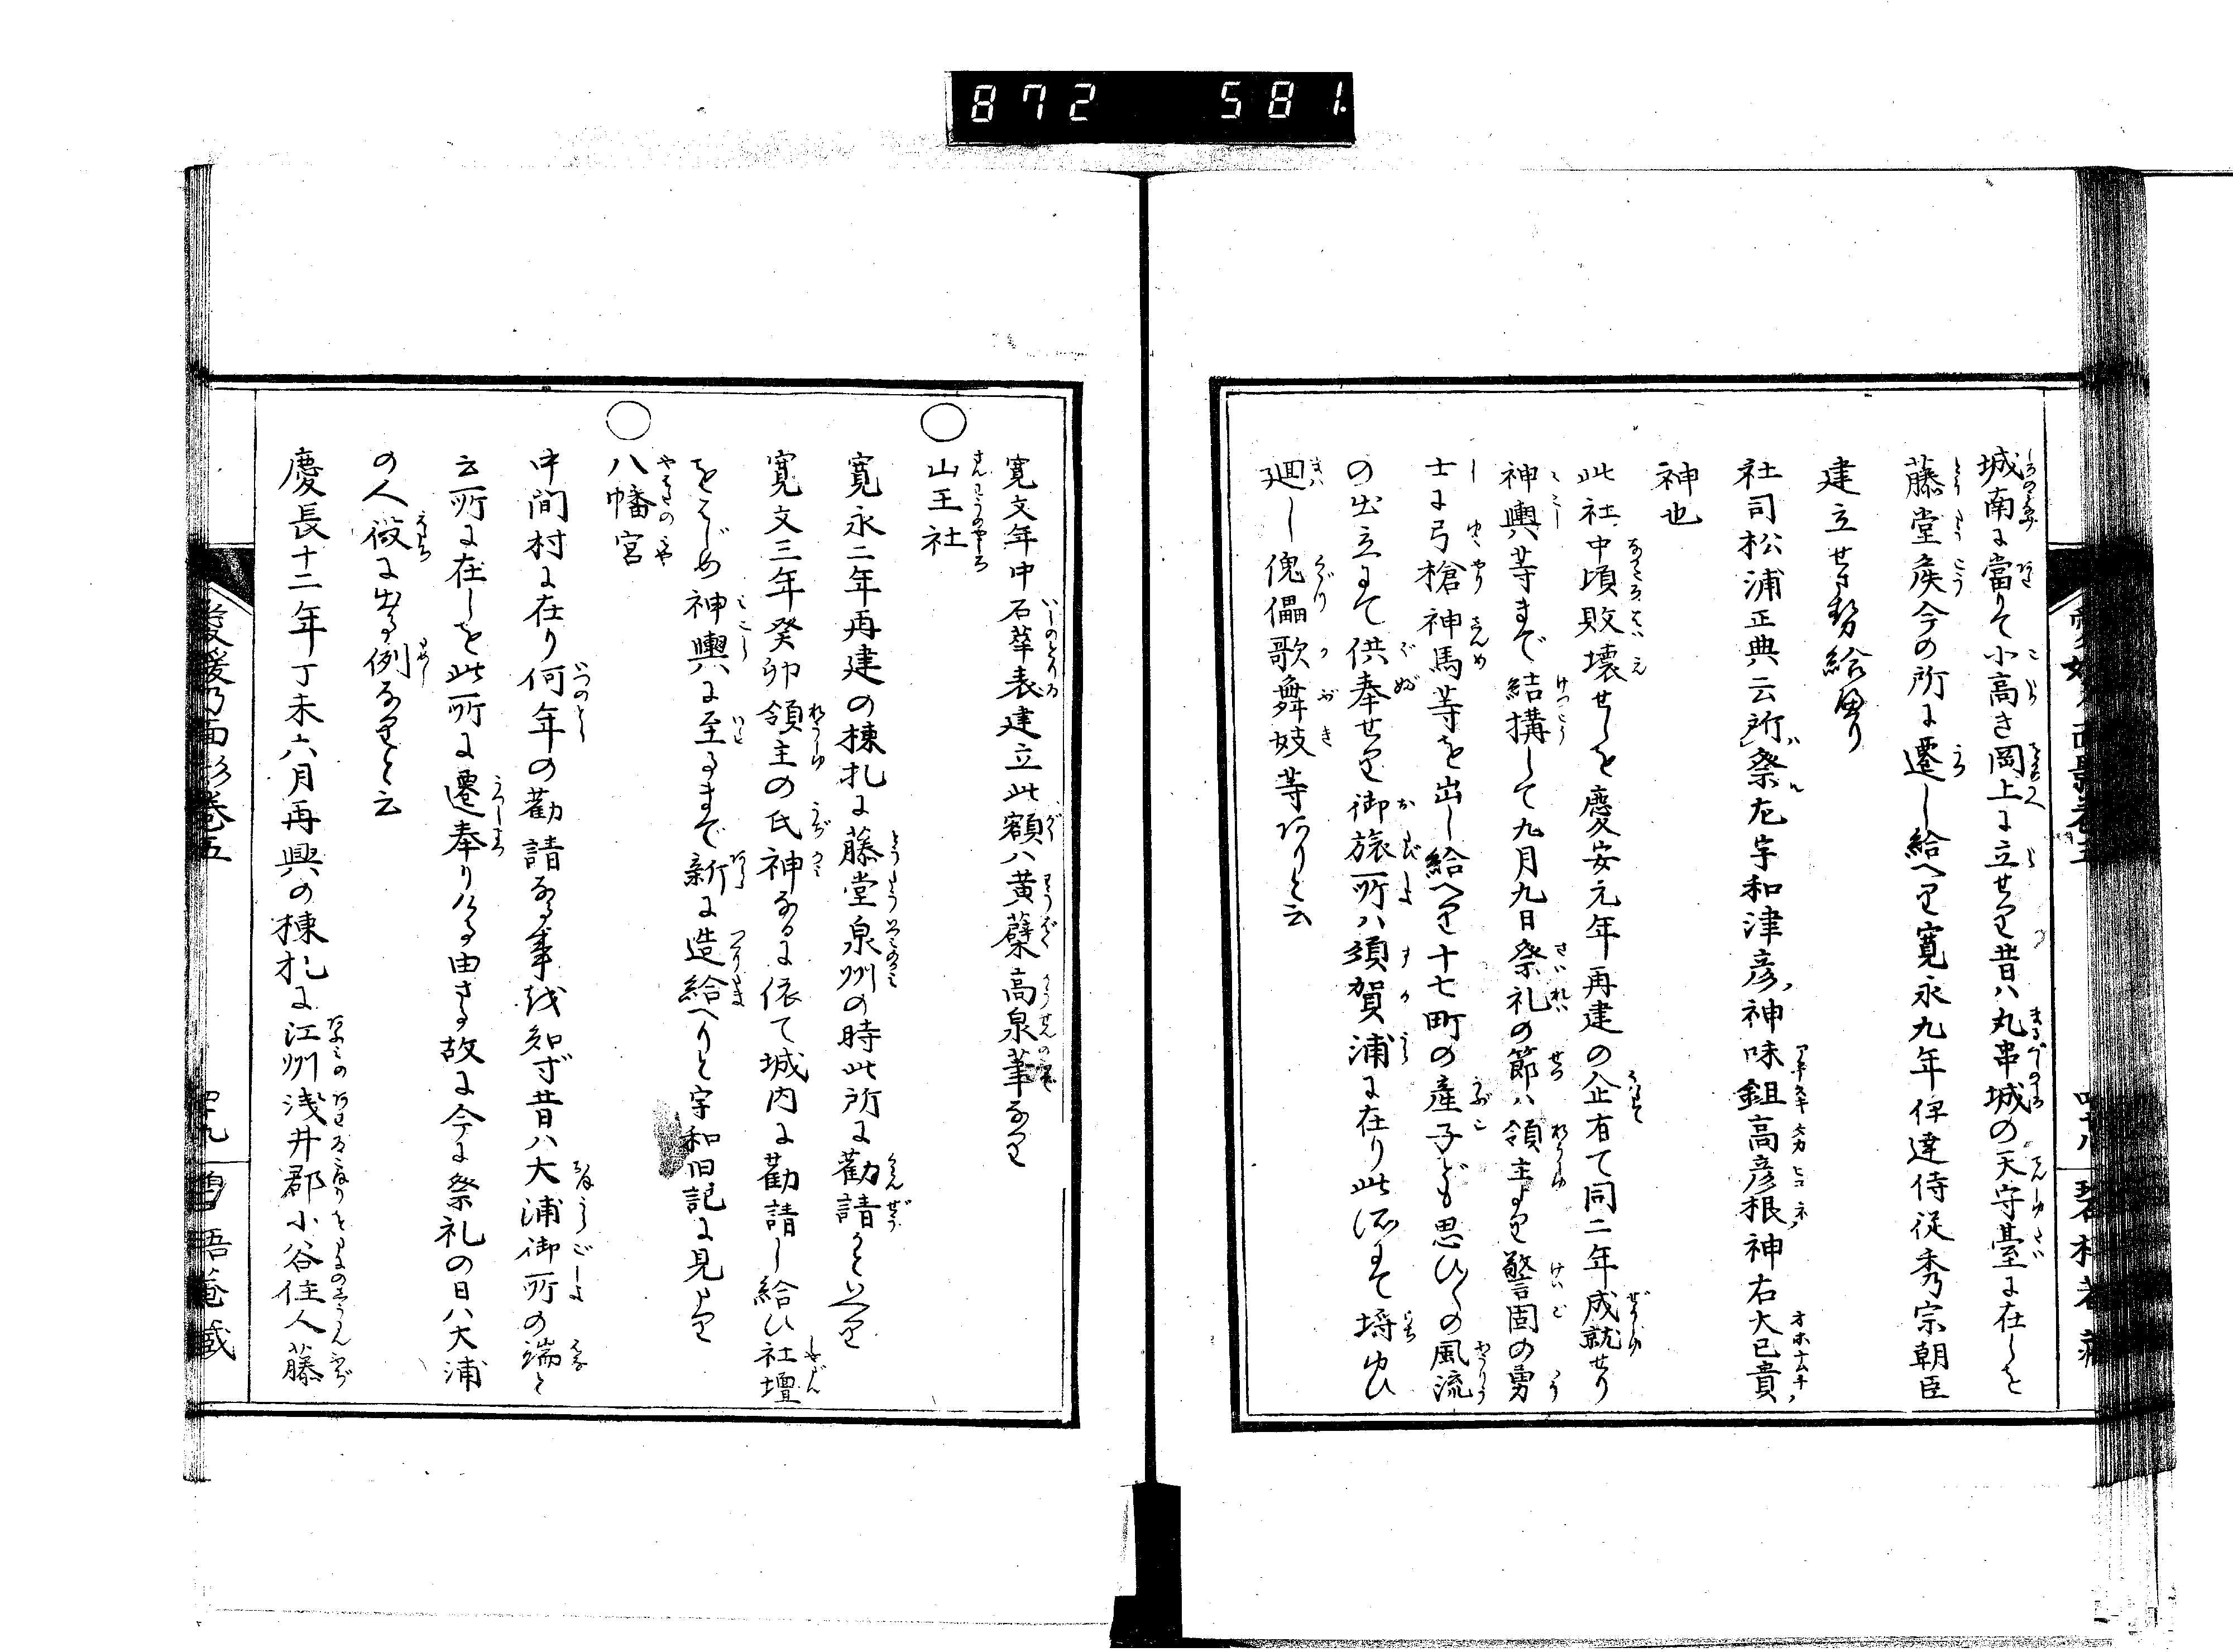 872 581
城南に當りて小高き岡上に立せり昔ハ丸串城の天守臺に在しを
藤堂侯今の所に遷し給へり寛永九年伊達侍従秀宗朝臣
建立せさせ給へり
社司松浦正典云所祭左宇和津彦神味鉏高彦根神右大已貴
神也
此社中頃敗壊せしを慶安元年再建の企有て同二年成就せり
神輿等まで結構して九月九日祭礼の節ハ領主より警固の勇
士に弓槍神馬等を出し給へり十七町の産子ども思ひ〱の風流
の出立にて供奉せり御旅所ハ須賀浦に在り此所にて埒ゆひ
廻し傀儡歌舞妓等ありと云
寛文年中石華表建立此額ハ黄蘗高泉筆なり
○山王社
寛永二年再建の棟札に藤堂泉州の時此所に勸請すといへり
寛文三年癸卯領主の氏神なるに依て城内に勸請し給ひ社壇
をはじめ神輿に至るまで新に造給へりと宇和旧記に見えたり
○八幡宮
中間村に在り何年の勸請なる事越知ず昔ハ大浦御所の端と
云所に在しを此所に遷奉りける由さる故に今に祭礼の日ハ大浦
の人役に出る例なりと云
慶長十二年丁未六月再興の棟札に江州浅井郡小谷住人藤
愛媛乃面影巻五
四十九